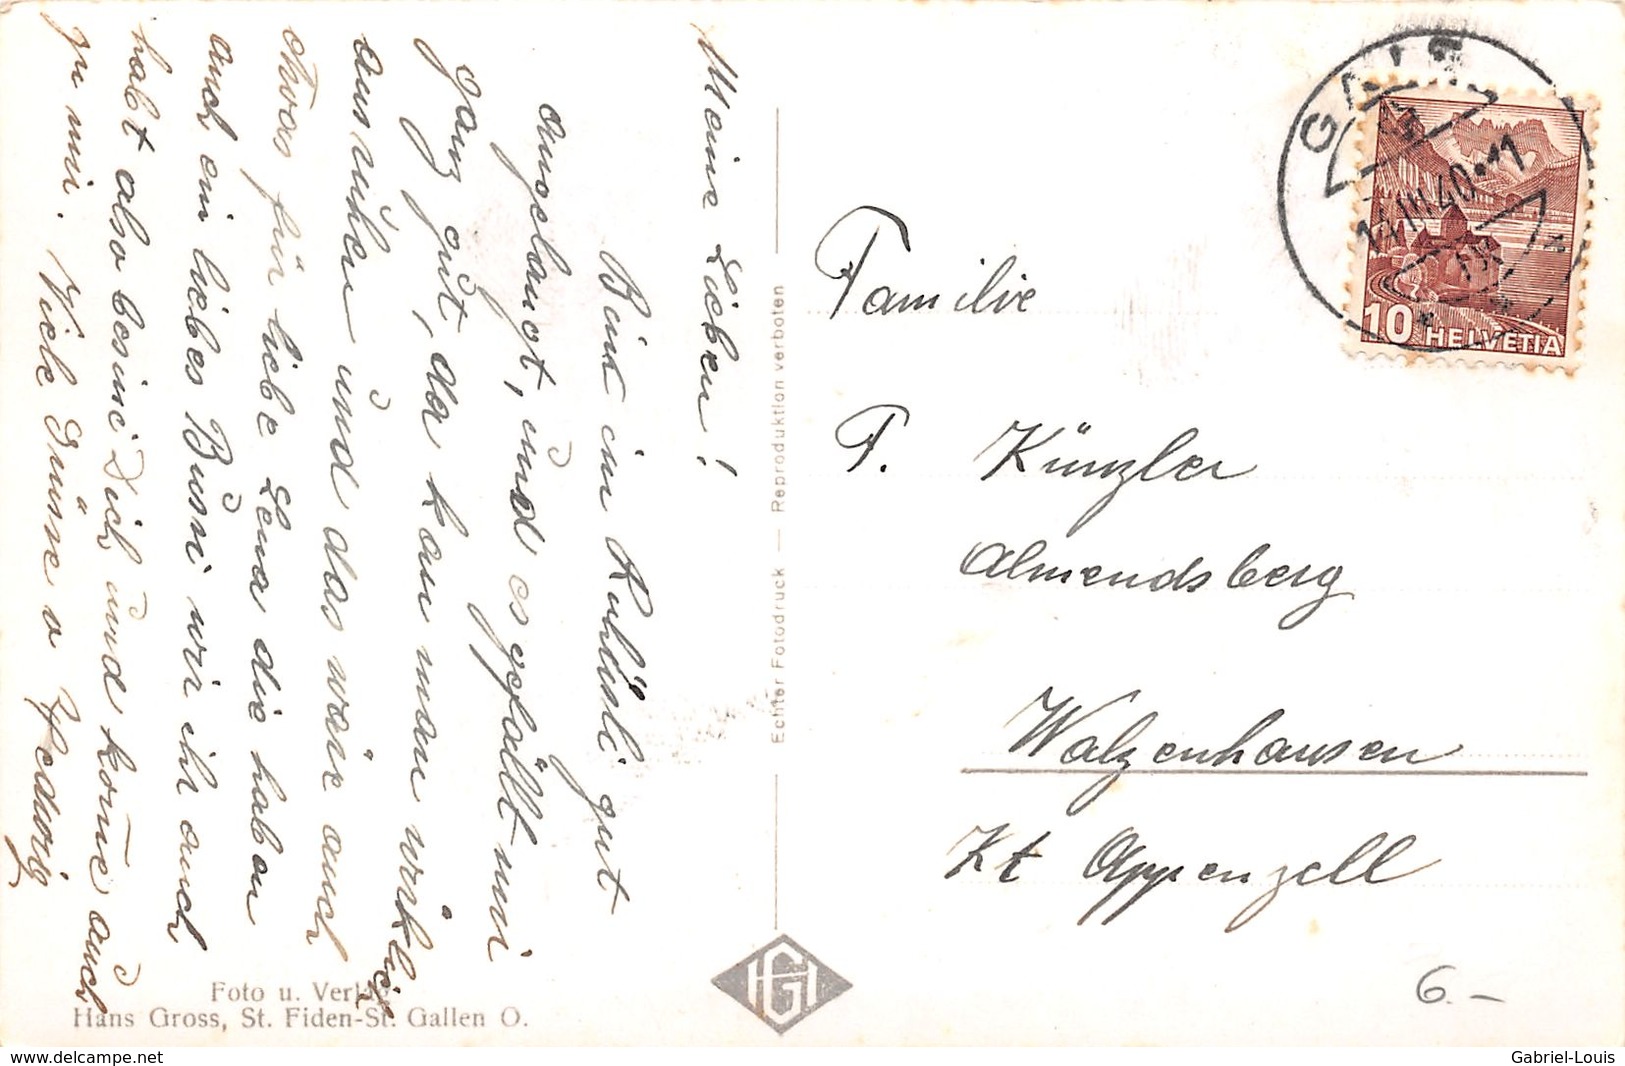 Meine Lieben!
Bin im Ruhüsli gut
angelangt, und es gefällt mir
ganz gut, da kan man wirklich
ausruhen und das wäre auch
etwas für liebe Lena die haben
auch ein liebes Bussi wir ihr auch
habt also besine Dich und kome auch
zu mir. Viele Grüsse v Hedwig
Echter Fotodruck — Reproduktion verboten
GAIS
VIII 40
10 HELVETIA
Familie
F. Künzler
Almendsberg
Walzenhausen
Kt Appenzell
6.–
HGH
Foto u. Verlag
Hans Gross, St. Fiden-St. Gallen O.
www.delcampe.net
Gabriel-Louis